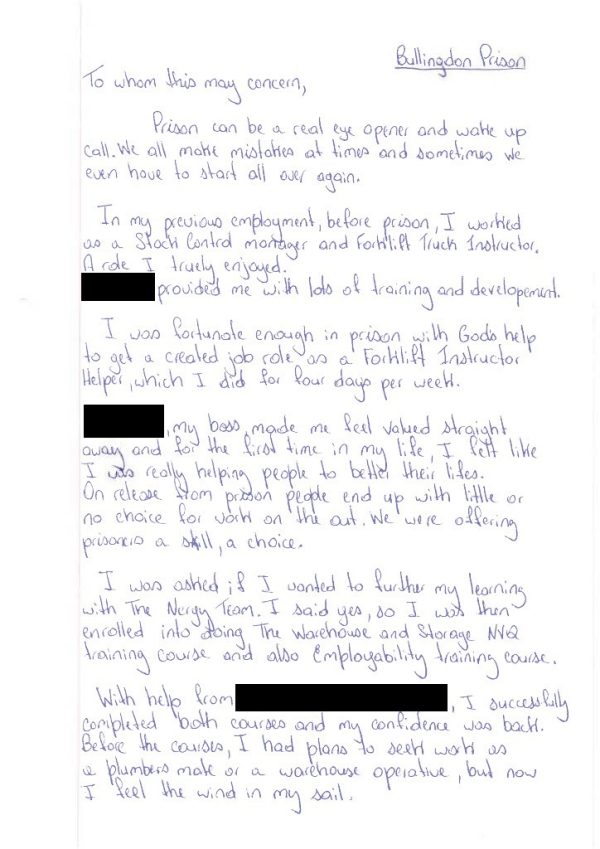 Bullingdon Prison
To whom this may concern,
Prison can be a real eye opener and wake up
call. We all make mistakes at times and sometimes we
even have to start all over again.
In my previous employment, before prison, I worked
as a Stock Control manager and Forklift Truck Instructor.
A role I truely enjoyed.
provided me with lots of training and developement.
I was fortunate enough in prison with Gods help
to get a created job role as a Forklift Instructor
Helper, which I did for four days per week.
, my boss, made me feel valued straight
away and for the first time in my life, I felt like
I was really helping people to better their lifes.
On release from prison people end up with little or
no choice for work on the out. We were offering
prisoners a skill, a choice.
I was asked if I wanted to further my learning
with The Nergy Team. I said yes, so I was then
enrolled into doing The Warehouse and Storage NVQ
training course and also Employability training course.
With help from , I successfully
completed both courses and my confidence was back.
Before the courses, I had plans to seek work as
a plumbers mate or a warehouse operative, but now
I feel the wind in my sail.